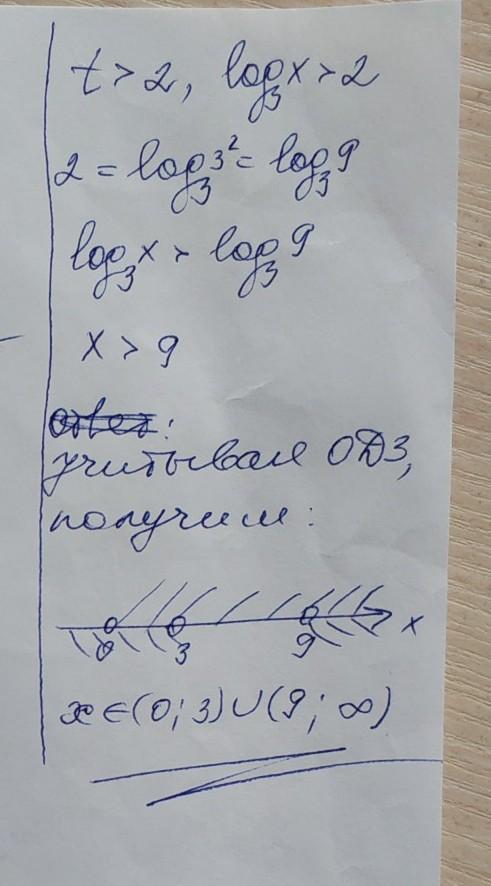 t > 2, log₃x > 2
2 = log₃3² = log₃9
log₃x > log₃9
x > 9
Ответ:
учитывая ОДЗ,
получим:
0 3 9 x
x ∈ (0; 3) ∪ (9; ∞)